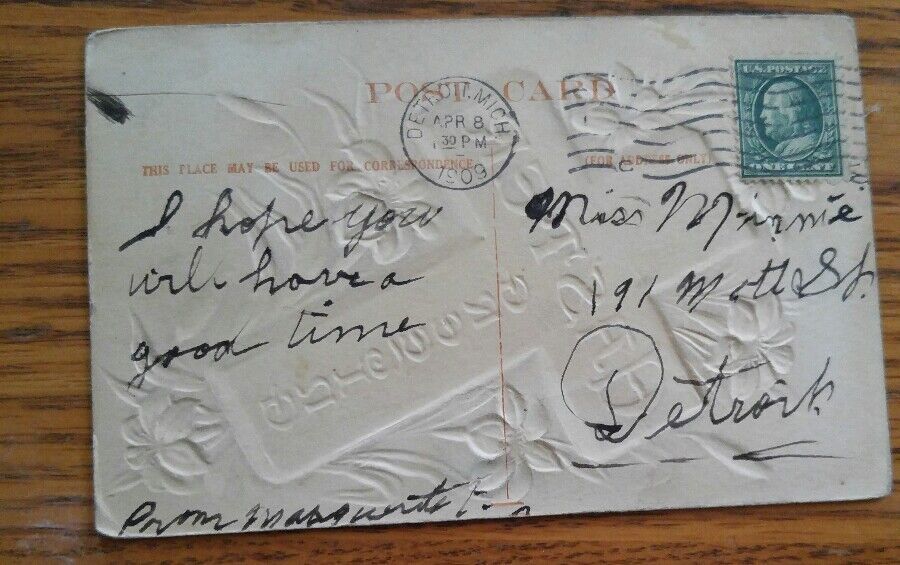 POST CARD
THIS PLACE MAY BE USED FOR CORRESPONDENCE
(FOR ADDRESS ONLY)
DETROIT, MICH.
APR 8
1 30 PM
1909
U.S. POSTAGE
ONE CENT
I hope you
will have a
good time
From Marguerite
Miss Minnie
191 Mott St.
Detroit